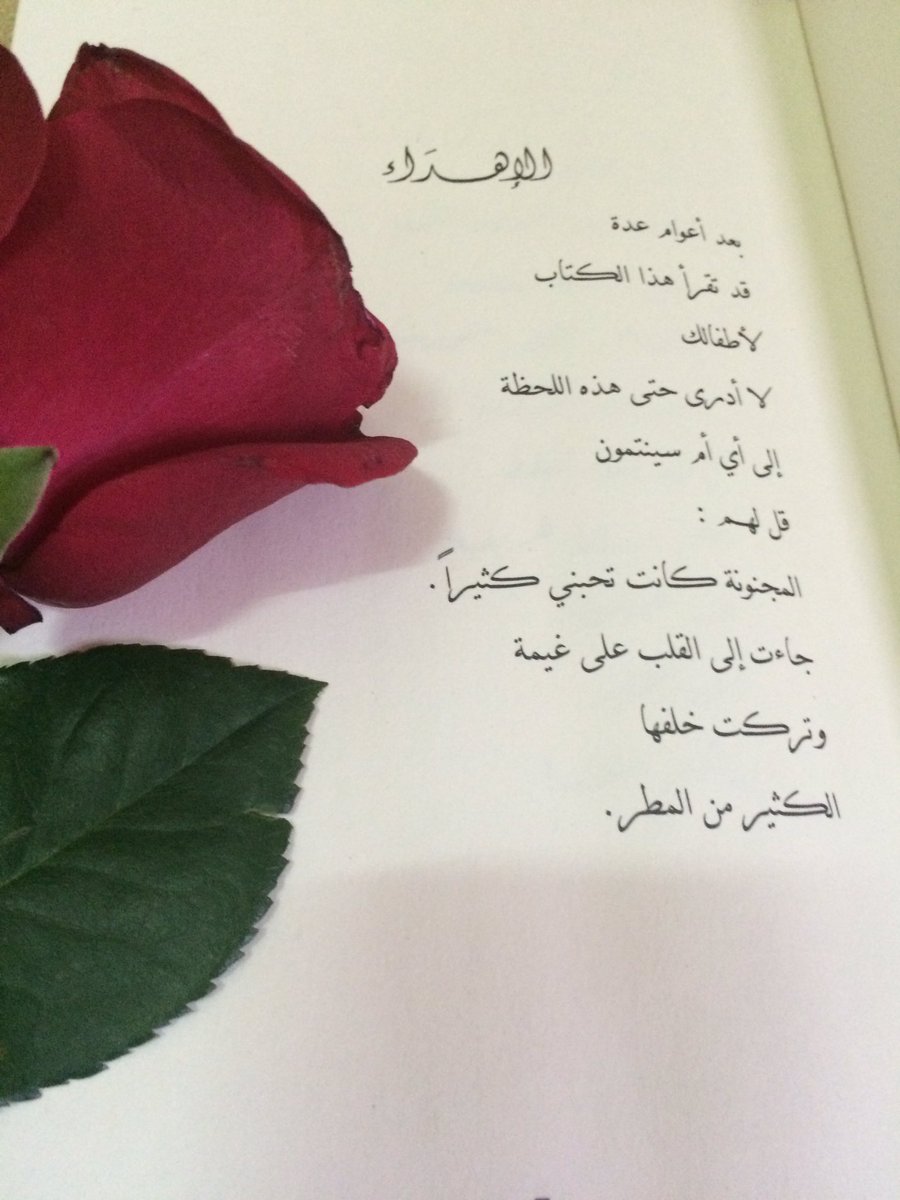 الإهدَاء
بعد أعوام عدة
قد تقرأ هذا الكتاب
لأطفالك
لا أدرى حتى هذه اللحظة
إلى أي أم سينتمون
قل لهم :
المجنونة كانت تحبني كثيراً.
جاءت إلى القلب على غيمة
وتركت خلفها
الكثير من المطر.